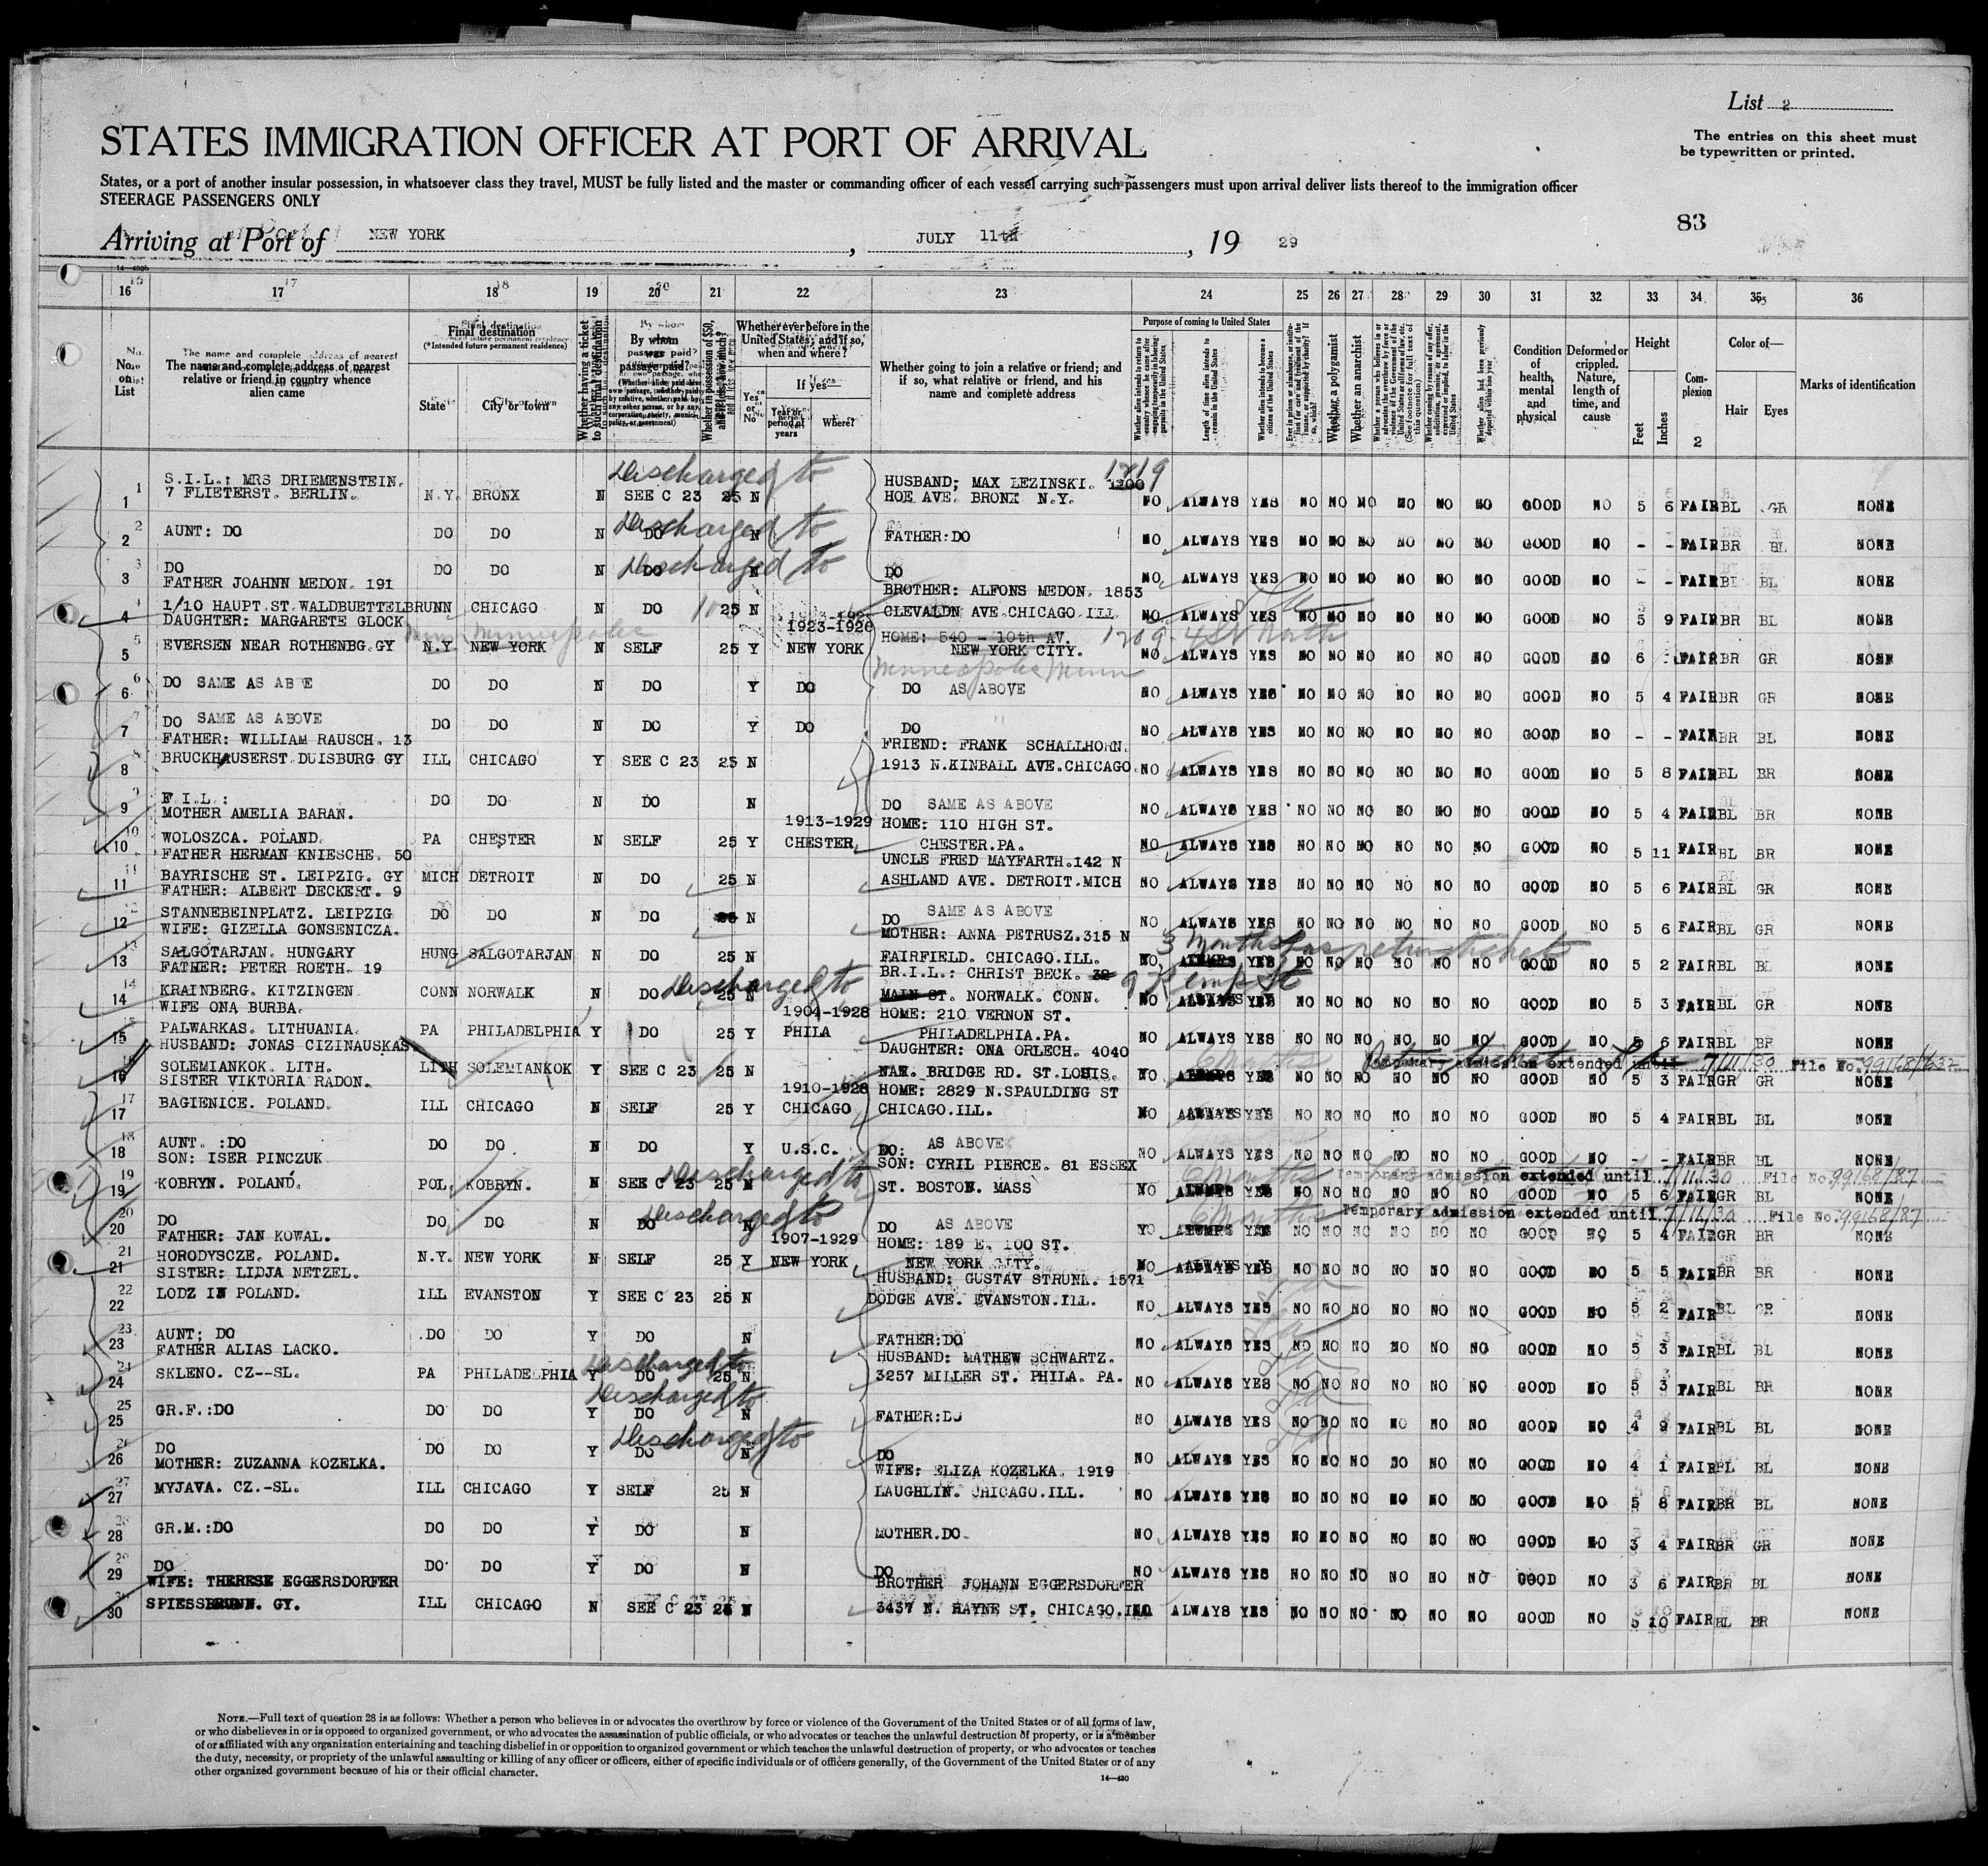 List 2
STATES IMMIGRATION OFFICER AT PORT OF ARRIVAL
The entries on this sheet must
be typewritten or printed.
States, or a port of another insular possession, in whatsoever class they travel, MUST be fully listed and the master or commanding officer of each vessel carrying such passengers must upon arrival deliver lists thereof to the immigration officer
STEERAGE PASSENGERS ONLY
83
Arriving at Port of NEW YORK, JULY 11th, 19 29
16 17 18 19 20 21 22 23 24 25 26 27 28 29 30 31 32 33 34 35 36
No. on List
The name and complete address of nearest relative or friend in country whence alien came
Final destination
(*Intended future permanent residence)
State City or town
Whether having a ticket to such final destination
By whom was passage paid?
Whether in possession of $50,
Whether ever before in the United States; and if so, when and where?
Yes or No
If yes—
Year or period of years
Where?
Whether going to join a relative or friend; and if so, what relative or friend, and his name and complete address
Purpose of coming to United States
Length of time alien intends to remain in the United States
Whether alien intends to become a citizen of the United States
Whether a polygamist
Whether an anarchist
Condition of health, mental and physical
Deformed or crippled. Nature, length of time, and cause
Height
Feet Inches
Complexion
Color of—
Hair Eyes
Marks of identification
Discharged to 1219
S.I.L.: MRS DRIEMENSTEIN. HUSBAND; MAX LEZINSKI. 1200
1 7 FLIETERST. BERLIN. N.Y. BRONX N SEE C 23 25 N HOE AVE. BRONX N.Y. NO ALWAYS YES NO NO NO NO NO NO GOOD NO 5 6 FAIR BL GR NONE
Discharged to
2 AUNT: DO DO DO N DO N FATHER:DO NO ALWAYS YES NO NO NO NO NO NO GOOD NO - - FAIR BR BL NONE
Discharged to
3 DO DO DO N DO N DO NO ALWAYS YES NO NO NO NO NO NO GOOD NO - - FAIR BL BL NONE
FATHER JOAHNN MEDON. 191 BROTHER: ALFONS MEDON. 1853
4 1/10 HAUPT ST. WALDBUETTELBRUNN CHICAGO N DO 25 N CLEVALDN AVE CHICAGO ILL NO ALWAYS YES NO NO NO NO NO NO GOOD NO 5 9 FAIR BR BL NONE
DAUGHTER: MARGARETE GLOCK 1923-1929 HOME: 540 - 10th AV. 1209 - 4 St North
Minn Minneapolis
5 EVERSEN NEAR ROTHENBG.GY N.Y. NEW YORK N SELF 25 Y NEW YORK NEW YORK CITY. NO ALWAYS YES NO NO NO NO NO NO GOOD NO 6 FAIR BR GR NONE
Minneapolis Minn
6 DO SAME AS ABVE DO DO N DO Y DO DO AS ABOVE NO ALWAYS YES NO NO NO NO NO NO GOOD NO 5 4 FAIR BR GR NONE
7 DO SAME AS ABOVE DO DO N DO Y DO DO NO ALWAYS YES NO NO NO NO NO NO GOOD NO - - FAIR BR BL NONE
FATHER: WILLIAM RAUSCH. 13 FRIEND: FRANK SCHALLHORN.
8 BRUCKHAUSERST DUISBURG GY ILL CHICAGO Y SEE C 23 25 N 1913 N.KINBALL AVE.CHICAGO. NO ALWAYS YES NO NO NO NO NO NO GOOD NO 5 8 FAIR BL BR NONE
9 F.I.L.: DO DO N DO N DO SAME AS ABOVE NO ALWAYS YES NO NO NO NO NO NO GOOD NO 5 4 FAIR BL BR NONE
MOTHER AMELIA BARAN. 1913-1929 HOME: 110 HIGH ST.
10 WOLOSZCA. POLAND. PA CHESTER N SELF 25 Y CHESTER CHESTER.PA. NO ALWAYS YES NO NO NO NO NO NO GOOD NO 5 11 FAIR BL BR NONE
FATHER HERMAN KNIESCHE. 50 UNCLE FRED MAYFARTH.142 N
11 BAYRISCHE ST. LEIPZIG. GY MICH DETROIT N DO 25 N ASHLAND AVE. DETROIT.MICH NO ALWAYS YES NO NO NO NO NO NO GOOD NO 5 6 FAIR BL GR NONE
FATHER: ALBERT DECKERT. 9
12 STANNEBEINPLATZ. LEIPZIG DO DO N DO N DO SAME AS ABOVE NO ALWAYS YES NO NO NO NO NO NO GOOD NO 5 6 FAIR BL GR NONE
WIFE: GIZELLA GONSENICZA. MOTHER: ANNA PETRUSZ.315 N 3 Months has return ticket
13 SALGOTARJAN. HUNGARY HUNG SALGOTARJAN N DO 25 N FAIRFIELD. CHICAGO.ILL. NO YES NO NO NO NO NO NO GOOD NO 5 2 FAIR BL BL NONE
FATHER: PETER ROETH. 19 Discharged to BR.I.L.: CHRIST BECK. 32
14 KRAINBERG. KITZINGEN CONN NORWALK N DO 25 N MAIN ST. NORWALK. CONN. NO ALWAYS NO NO NO NO NO NO GOOD NO 5 3 FAIR BL GR NONE
WIFE ONA BURBA. 1904-1928 HOME: 210 VERNON ST.
15 PALWARKAS. LITHUANIA. PA PHILADELPHIA Y DO 25 Y PHILA PHILADELPHIA.PA. NO ALWAYS YES NO NO NO NO NO NO GOOD NO 5 6 FAIR BL BR NONE
HUSBAND: JONAS CIZINAUSKAS. DAUGHTER: ONA ORLECH. 4040 6 Months Temporary admission extended until 7/11/30 File No. 99168/632
16 SOLEMIANKOK. LITH. LITH SOLEMIANKOK Y SEE C 23 25 N BRIDGE RD. ST.LOUIS. NO NO NO NO NO NO GOOD NO 5 3 FAIR GR GR NONE
SISTER VIKTORIA RADON. 1910-1928 HOME: 2829 N.SPAULDING ST
17 BAGIENICE. POLAND. ILL CHICAGO N SELF 25 Y CHICAGO CHICAGO.ILL. NO ALWAYS YES NO NO NO NO NO NO GOOD NO 5 4 FAIR BL BL NONE
18 AUNT. :DO DO DO N DO Y U.S.C. DO: AS ABOVE NO ALWAYS YES NO NO NO NO NO NO GOOD NO - - FAIR BR BL NONE
SON: ISER PINCZUK Discharged to SON: CYRIL PIERCE. 81 ESSEX 6 Months Temporary admission extended until 7/11/30 File No. 99168/87
19 KOBRYN. POLAND. POL. KOBRYN. N SEE C 23 25 N ST. BOSTON. MASS NO NO NO NO NO NO GOOD NO 5 6 FAIR GR BL NONE
Discharged to 6 Months Temporary admission extended until 7/11/30 File No. 99168/87
20 DO DO DO N DO N DO AS ABOVE NO NO NO NO NO NO GOOD NO 5 4 FAIR GR BR NONE
FATHER: JAN KOWAL. 1907-1929 HOME: 189 E. 100 ST.
21 HORODYSCZE. POLAND. N.Y. NEW YORK N SELF 25 Y NEW YORK NEW YORK CITY. NO ALWAYS YES NO NO NO NO NO NO GOOD NO 5 5 FAIR BR BR NONE
SISTER: LIDJA NETZEL. HUSBAND: GUSTAV STRUNK. 1571
22 LODZ IN POLAND. ILL EVANSTON Y SEE C 23 25 N DODGE AVE. EVANSTON.ILL. NO ALWAYS YES NO NO NO NO NO NO GOOD NO 5 2 FAIR BL GR NONE
23 AUNT; DO DO DO Y DO N FATHER:DO NO ALWAYS YES NO NO NO NO NO NO GOOD NO 5 3 FAIR BL BL NONE
FATHER ALIAS LACKO. Discharged to HUSBAND: MATHEW SCHWARTZ.
24 SKLENO. CZ--SL. PA PHILADELPHIA Y DO 25 N 3257 MILLER ST. PHILA. PA. NO ALWAYS YES NO NO NO NO NO NO GOOD NO 5 3 FAIR BL BR NONE
Discharged to
25 GR.F.:DO DO DO Y DO N FATHER:DO NO ALWAYS YES NO NO NO NO NO NO GOOD NO 4 9 FAIR BL BL NONE
Discharged to
26 DO DO DO Y DO N DO NO ALWAYS YES NO NO NO NO NO NO GOOD NO 4 1 FAIR BL BL NONE
MOTHER: ZUZANNA KOZELKA. WIFE: ELIZA KOZELKA. 1919
27 MYJAVA. CZ.-SL. ILL CHICAGO Y SELF 25 N LAUGHLIN. CHICAGO.ILL. NO ALWAYS YES NO NO NO NO NO NO GOOD NO 5 8 FAIR BR BL NONE
28 GR.M.:DO DO DO Y DO N MOTHER.DO NO ALWAYS YES NO NO NO NO NO NO GOOD NO 3 4 FAIR BR GR NONE
29 DO DO DO Y DO N DO NO ALWAYS YES NO NO NO NO NO NO GOOD NO 3 6 FAIR BR BL NONE
WIFE: THERESE EGGERSDORFER BROTHER JOHANN EGGERSDORFER
30 SPIESSBRUNN. GY. ILL CHICAGO N SEE C 23 N 3437 N. HAYNE ST. CHICAGO. ALWAYS YES NO NO NO NO NO NO GOOD NO 5 10 FAIR BL BR NONE
NOTE.—Full text of question 28 is as follows: Whether a person who believes in or advocates the overthrow by force or violence of the Government of the United States or of all forms of law,
or who disbelieves in or is opposed to organized government, or who advocates the assassination of public officials, or who advocates or teaches the unlawful destruction of property, or is a member
of or affiliated with any organization entertaining and teaching disbelief in or opposition to organized government or which teaches the unlawful destruction of property, or who advocates or teaches
the duty, necessity, or propriety of the unlawful assaulting or killing of any officer or officers, either of specific individuals or of officers generally, of the Government of the United States or of any
other organized government because of his or their official character.
14—430